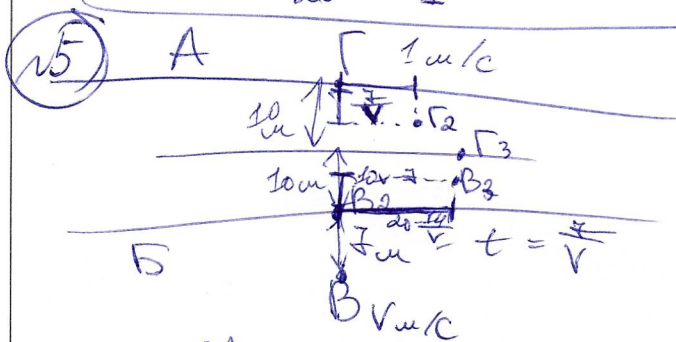 №5 А Г 1 м/с
10 м 7/V Г2
Г3
10 м 10V-7 В3
В2 20-14/V
Б 7 м t = 7/V
В V м/с